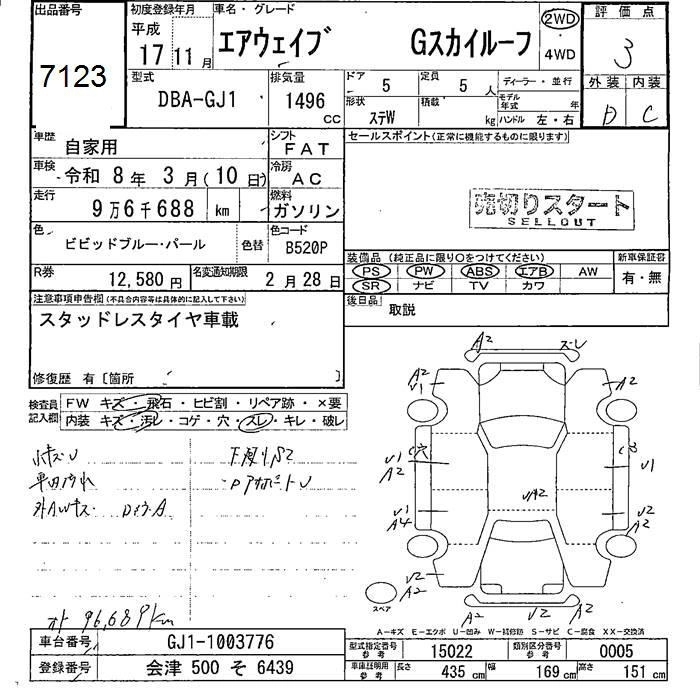 出品番号
7123
初度登録年月
平成
17 11月
車名・グレード
エアウェイブ Gスカイルーフ
2WD
4WD
評価点
3
外装 内装
D C
型式
DBA-GJ1
排気量
1496
cc
ドア
5
定員
5 人
ディーラー・並行
形状
ステW
積載
kg
モデル年式 年
ハンドル 左・右
車歴
自家用
シフト
FAT
車検
令和 8年 3月(10日)
冷房
AC
走行
9万6千688 km
燃料
ガソリン
色
ビビッドブルー・パール
色替
色コード
B520P
R券
12,580円
名変通知期限
2月28日
セールスポイント(正常に機能するものに限ります)
売切りスタート
SELLOUT
装備品(純正品に限り○をつけてください)
PS PW ABS エアB AW
SR ナビ TV カワ
新車保証書
有・無
後日品
取説
注意事項申告欄(不具合内容等は具体的に記入して下さい)
スタッドレスタイヤ車載
修復歴 有〔箇所 〕
検査員記入欄
FW キズ・飛石・ヒビ割・リペア跡・×要
内装 キズ・汚レ・コゲ・穴・スレ・キレ・破レ
A2 スレ
A2
V1
A2
V1
A2
V1
V1
A4
V2
A2
VA2
A2
V2
A2
V2
A2
スペア
オト 96,689km
A-キズ E-エクボ U-凹み W-補修跡 S-サビ C-腐食 XX-交換済
車台番号
GJ1-1003776
登録番号
会津 500 そ 6439
型式指定番号 参考
15022
類別区分番号 参考
0005
車庫証明用 参考
長さ 435 cm 幅 169 cm 高さ 151 cm